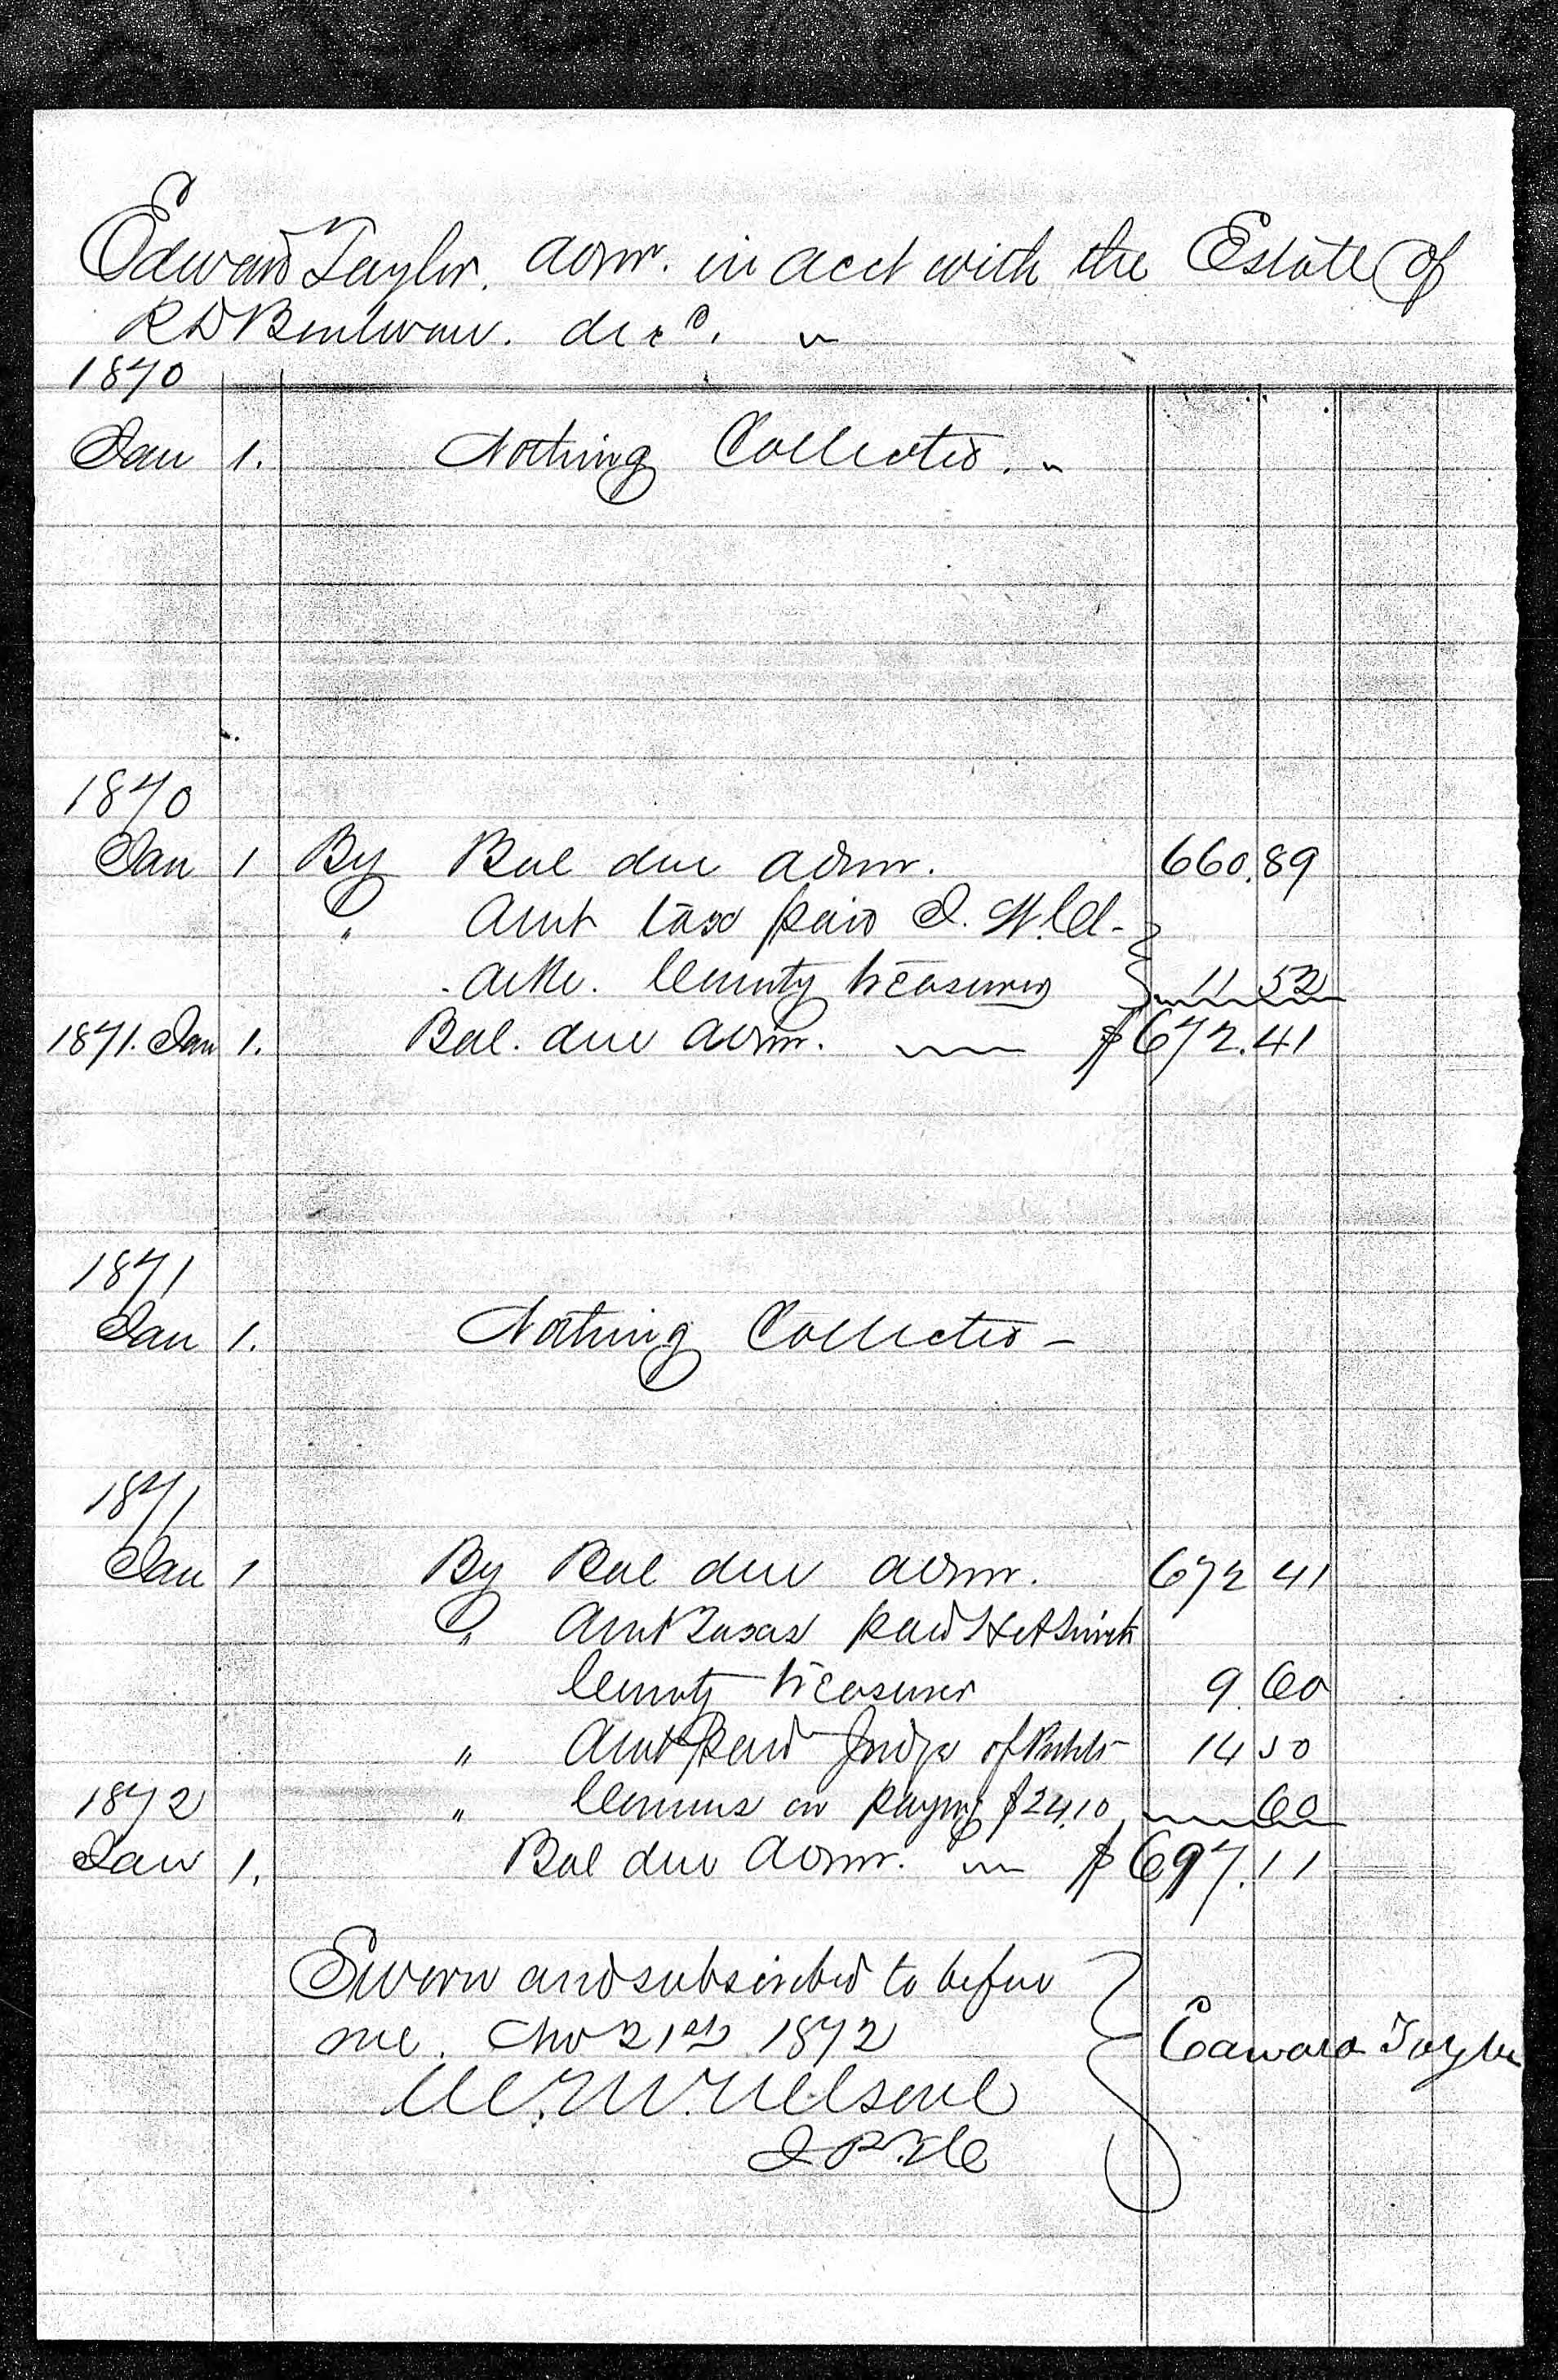 Edward Taylor. admr. in acct with the Estate of
R D Bentwau. decd.
1870
Jan 1. Nothing Collected.
1870
Jan 1 By Bal due admr. 660.89
" Amt tax paid
County treasurer 11 52
1871. Jan 1. Bal. due admr. $672.41
1871
Jan 1. Nothing Collected -
1871
Jan 1 By Bal due admr. 672 41
" Amt Taxes paid
County treasurer 9.60
" Amt Paid Judge of Probt 14 50
1872 " Commis on paying $24.10 60
Jan 1. Bal due Admr. $697.11
Sworn and subscribed to before
me. Nov 21st 1872
Edward Taylor